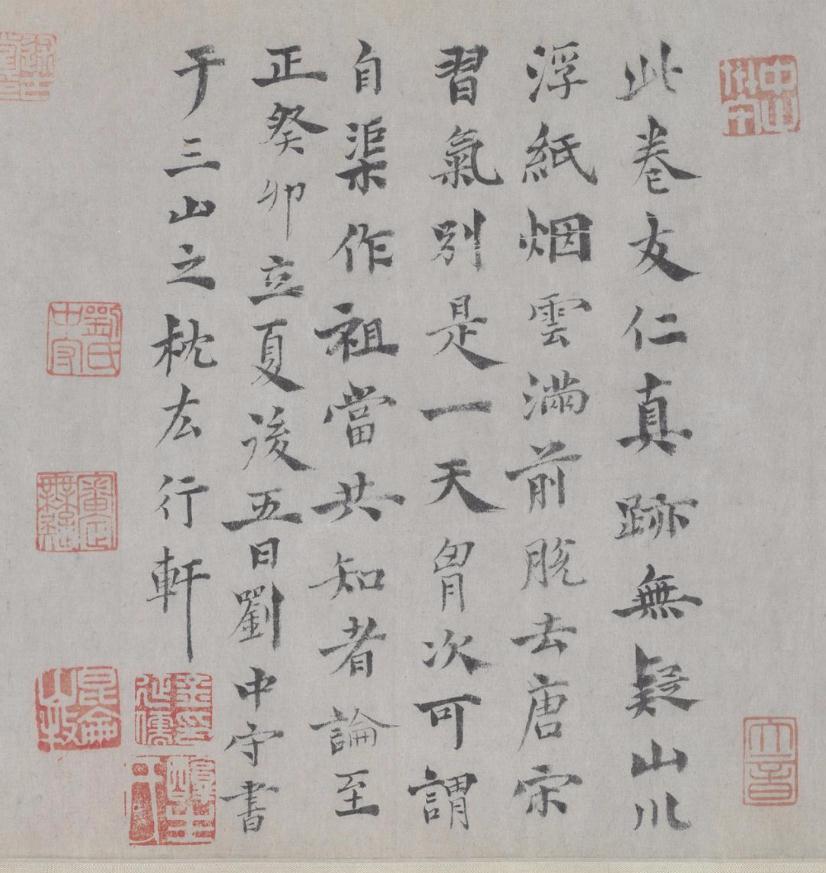 此卷友仁真跡無疑山川
浮紙烟雲滿前脫去唐宋
習氣別是一天胷次可謂
自渠作祖當共知者論至
正癸卯立夏後五日劉中守書
于三山之枕玄行軒
中山
大音
劉氏中守